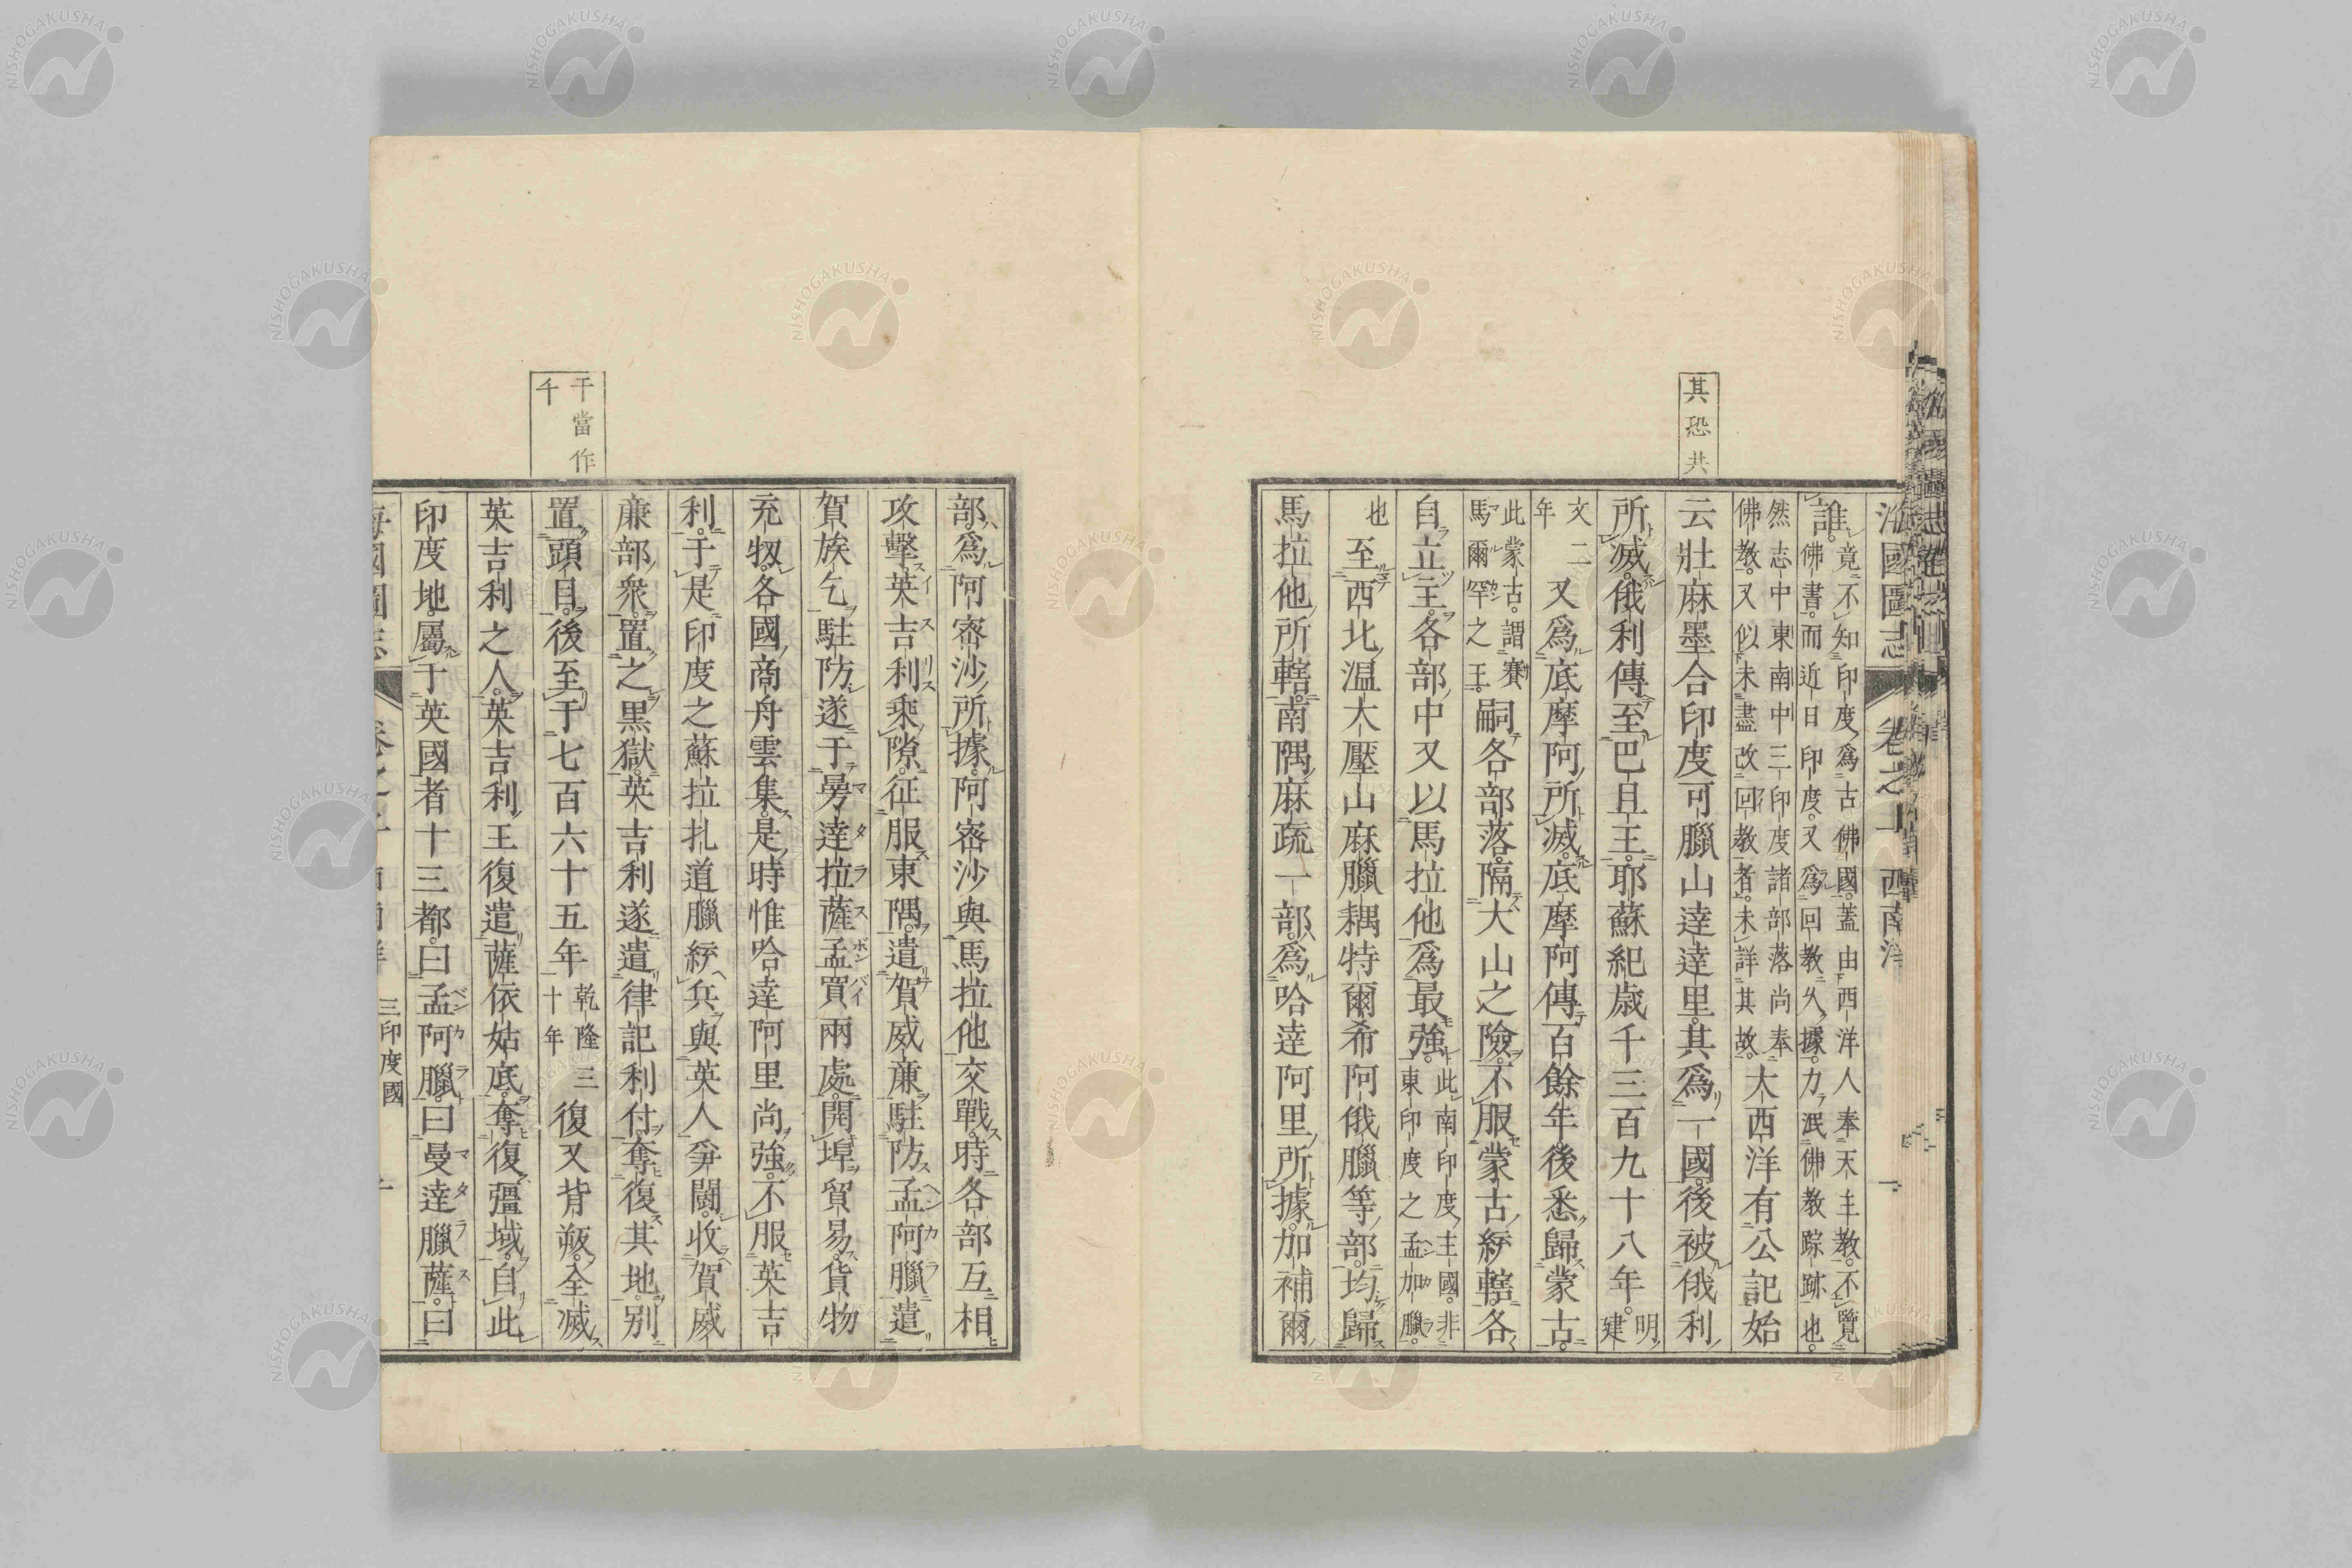 海國圖志 卷之十 西南洋
其恐共
誰竟不知印度爲古佛國蓋由西洋人奉天主教不覽
佛書而近日印度又爲回教久據力泯佛教踪跡也
然志中東南中三印度諸部落尚奉
佛教又似未盡改回教者未詳其故大西洋有公記始
云壯麻墨合印度可臘山達達里其爲一國後被俄利
所滅俄利傳至巴且王耶蘇紀歲千三百九十八年明建
文二年又爲底摩阿所滅底摩阿傳百餘年後悉歸蒙古
此蒙古謂賽馬爾罕之王嗣各部落隔大山之險不服蒙古綂轄各
自立王各部中又以馬拉他爲最強此南印度主國非東印度之孟加臘
也至西北温大壓山麻臘耦特爾希阿俄臘等部均歸
馬拉他所轄南隅麻疏一部爲哈達阿里所據加補爾
千當作
千
部爲阿宻沙所據阿宻沙與馬拉他交戰時各部互相
攻擊英吉利乘隙征服東隅遣賀威亷駐防孟阿臘遣
賀族乞駐防遂于曼達拉薩孟買兩處開埠貿易貨物
充牣各國商舟雲集是時惟哈達阿里尚強不服英吉
利于是印度之蘇拉扎道臘綂兵與英人爭鬭收賀威
亷部衆置之黑獄英吉利遂遣律記利付奪復其地别
置頭目後至于七百六十五年乾隆三十年復又背叛全滅
英吉利之人英吉利王復遣薩依姑底奪復彊域自此
印度地屬于英國者十三都曰孟阿臘曰曼達臘薩曰
三印度國